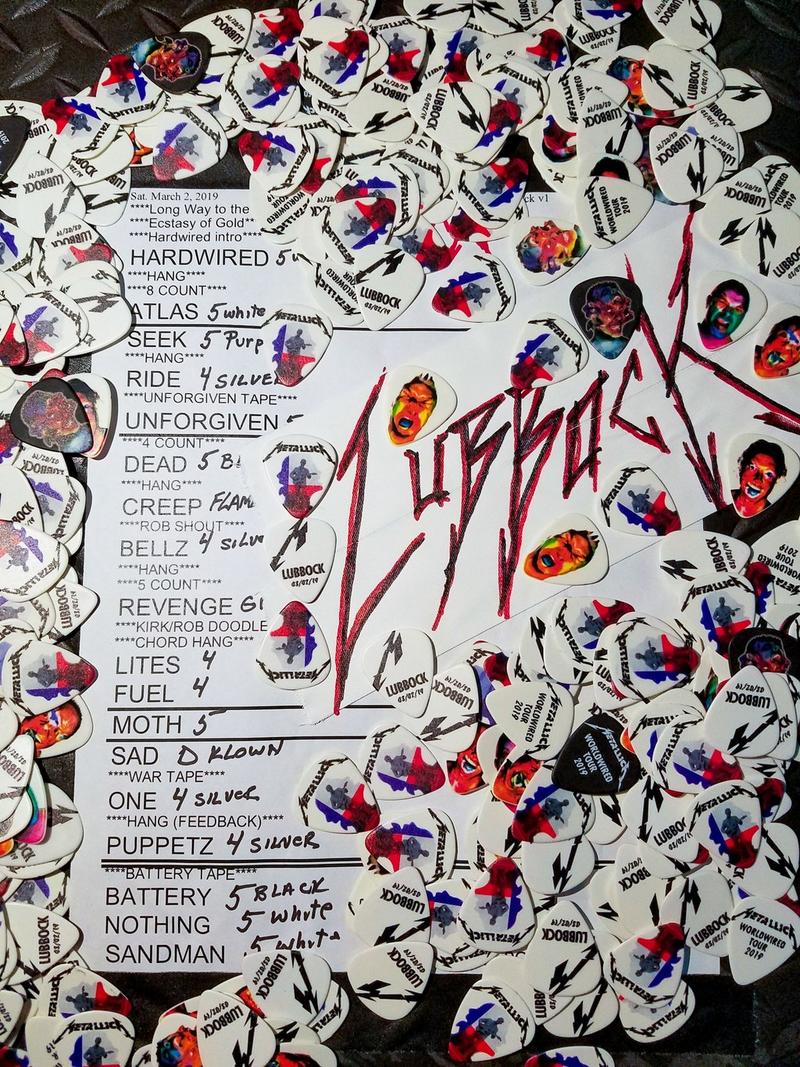 Sat. March 2, 2019
****Long Way to the
****Ecstasy of Gold**
****Hardwired intro**
HARDWIRED 5
****HANG****
****8 COUNT****
ATLAS 5 white
SEEK 5 Purp
****HANG****
RIDE 4 SILVE
****UNFORGIVEN TAPE****
UNFORGIVEN 5
****4 COUNT****
DEAD 5 B
****HANG****
CREEP FLAM
****ROB SHOUT****
BELLZ 4 SILV
****HANG****
****5 COUNT****
REVENGE
****KIRK/ROB DOODLE
****CHORD HANG****
LITES 4
FUEL 4
MOTH 5
SAD D KLOWN
****WAR TAPE****
ONE 4 SILVER
****HANG (FEEDBACK)****
PUPPETZ 4 SILVER
****BATTERY TAPE****
BATTERY 5 BLACK
NOTHING 5 white
SANDMAN 5 white
v1
LUBBOCK
METALLICA
LUBBOCK
03/02/19
METALLICA
WORLDWIRED
TOUR
2019